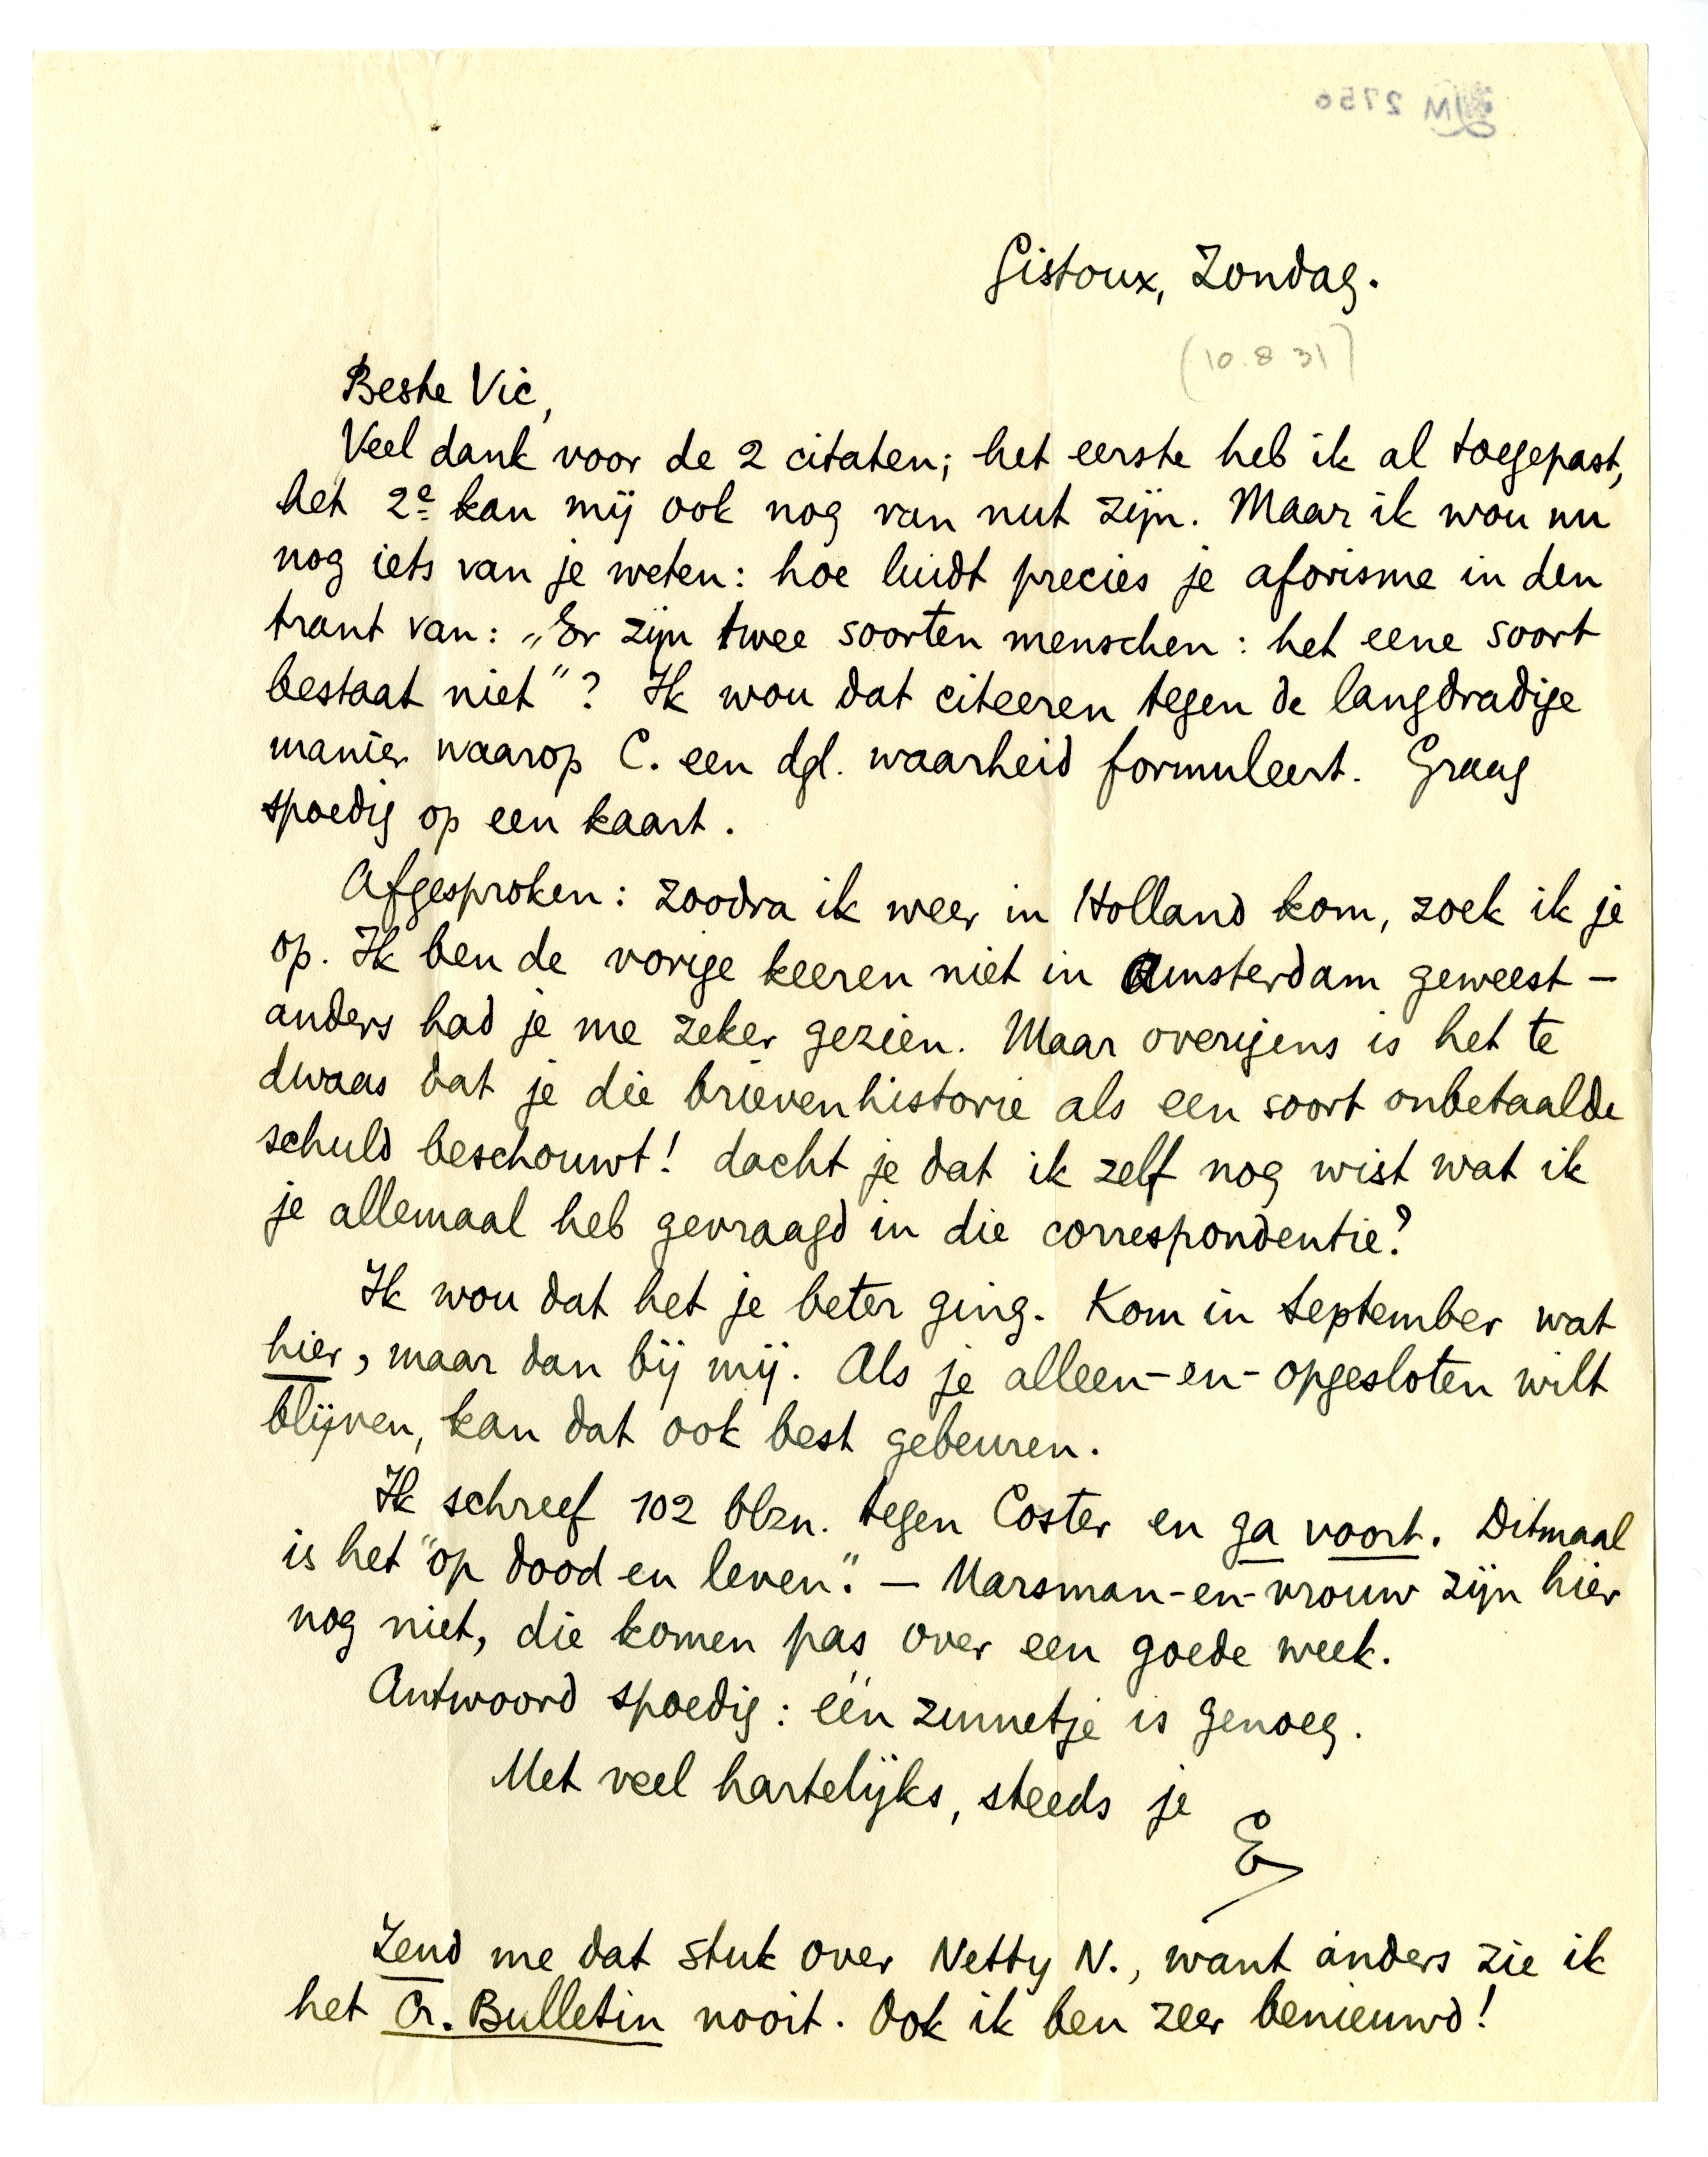 LM 2756
Gistoux, Zondag.
(10.8 31)
Beste Vic,
Veel dank voor de 2 citaten; het eerste heb ik al toegepast,
het 2e kan mij ook nog van nut zijn. Maar ik wou nu
nog iets van je weten: hoe luidt precies je aforisme in den
trant van: „Er zijn twee soorten menschen: het eene soort
bestaat niet"? Ik wou dat citeeren tegen de langdradige
manier waarop C. een dgl. waarheid formuleert. Graag
spoedig op een kaart.
Afgesproken: zoodra ik weer in Holland kom, zoek ik je
op. Ik ben de vorige keeren niet in Amsterdam geweest —
anders had je me zeker gezien. Maar overigens is het te
dwaas dat je die brievenhistorie als een soort onbetaalde
schuld beschouwt! dacht je dat ik zelf nog wist wat ik
je allemaal heb gevraagd in die correspondentie?
Ik wou dat het je beter ging. Kom in September wat
hier, maar dan bij mij. Als je alleen-en-opgesloten wilt
blijven, kan dat ook best gebeuren.
Ik schreef 102 blzn. tegen Coster en ga voort. Ditmaal
is het "op dood en leven". — Marsman-en-vrouw zijn hier
nog niet, die komen pas over een goede week.
Antwoord spoedig: één zinnetje is genoeg.
Met veel hartelijks, steeds je
E
Zend me dat stuk over Netty N., want anders zie ik
het Cr. Bulletin nooit. Ook ik ben zeer benieuwd!